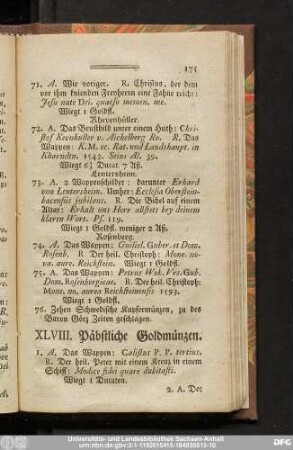 175
71. A. Wie voriger. R. Christus, der dem
vor ihm knienden Freyherrn eine Fahne reicht:
Jesu nate Dei. quaeso memen. me.
Wiegt 1 Goldfl.
Khevenhüller.
72. A. Das Brustbild unter einem Huth: Chri-
stof Kevenhuller v. Aichelberg Ro. R. Das
Wappen: K. M. ec. Rat. und Landshaupt. in
Kharndtn. 1543. Seins Al. 39.
Wiegt 6½ Ducat. 7 Aß.
Lentersheim.
73. A. 2 Wappenschilder: darunter Erhard
von Lentersheim. Umher: Ecclesia Obersstein-
bacensis jubilans. R. Die Bibel auf einem
Altar: Erhalt uns Herr allstets bey deinem
klaren Wort. Ps. 119.
Wiegt 1 Goldfl. weniger 2 Aß.
Rosenberg.
74. A. Das Wappen: Guilel. Guber. et Dom.
Rosenb. R. Der heil. Christoph: Mone. no-
va. aure. Reichstein. Wiegt 1 Goldfl.
75. A. Das Wappen: Petrus Wok. Vrs. Gub.
Dom. Rosenbergicae. R. Der heil. Christoph:
Mone. no. aurea Reichsteinensis 1592.
Wiegt 1 Goldfl.
76. Zehen Schwedische Kupfermünzen, zu des
Baron Götz Zeiten geschlagen.
XLVIII. Päbstliche Goldmünzen.
1. A. Das Wappen: Calistus P. P. tertius.
R. Der heil. Peter mit einem Kreuz in einem
Schiff: Modice fidei quare dubitasti.
Wiegt 1 Ducaten.
2. A. Der
Universitäts- und Landesbibliothek Sachsen-Anhalt
urn:nbn:de:gbv:3:1-1192015415-184639615-10
DFG